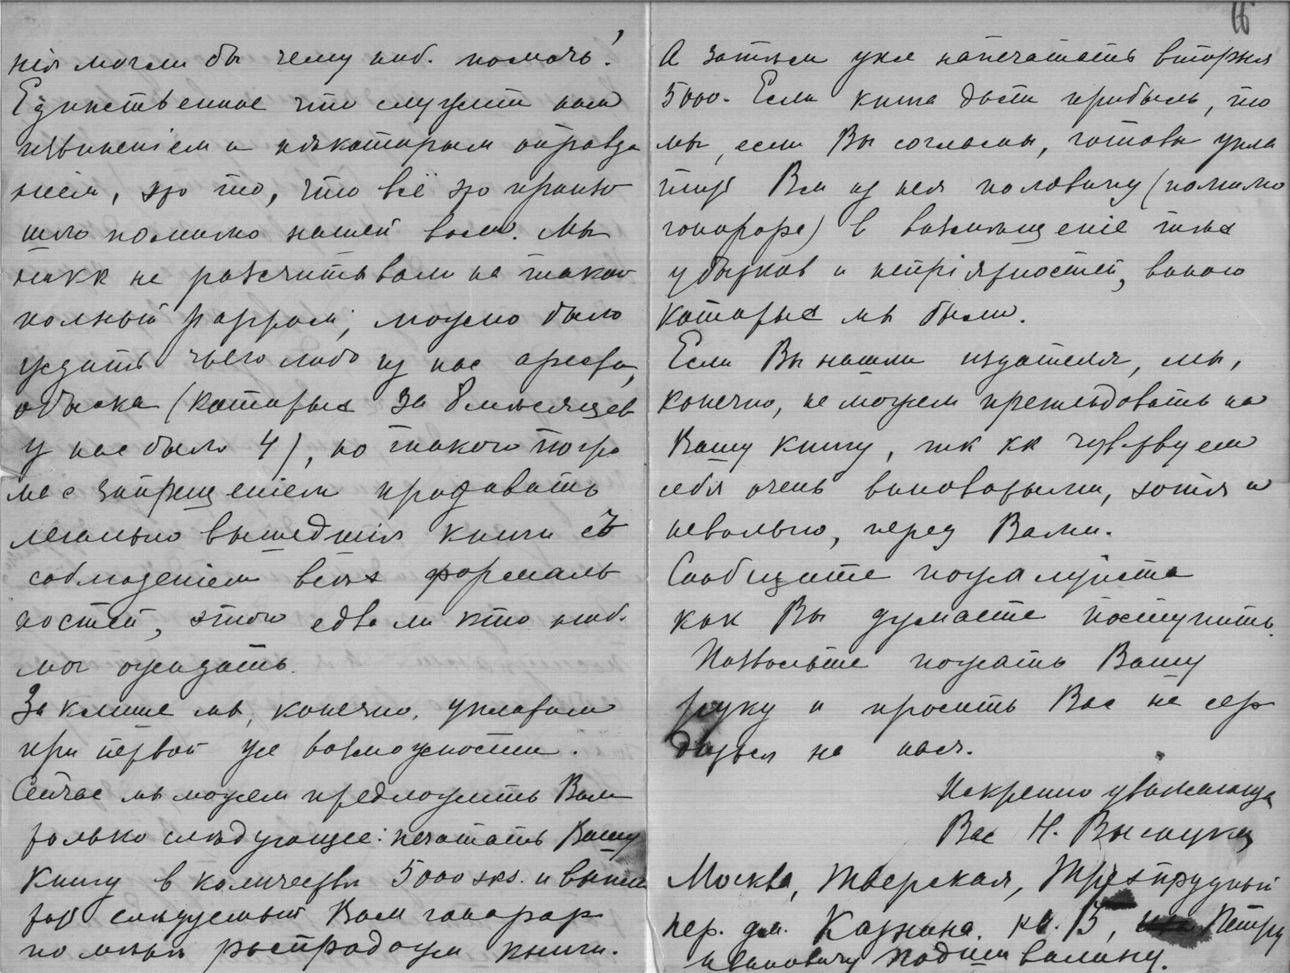 нія могли бы чему ниб. помочь!
Единственное что служитъ нам
извиненіем и некоторым оправда
ніем, это то, что всё это произо
шло помимо нашей воли. Мы
никк не разсчитывали на такой
полный разгром; можно было
ждать чьего либо из нас ареста,
обыска (которых за 8 месяцев
у нас было 4), но такого погро
ма с запрещеніем продавать
легально вышедшія книги съ
соблюденіем всех формаль
ностей, этого едва ли кто ниб.
мог ожидать.
За клише мы, конечно, уплатим
при первой же возможности.
Сейчас мы можем предложить Вам
только следующее: печатать Вашу
книгу в количестве 5000 экз. и выпла
тив следуемый Вам гонорар
по мере распродажи книги.
16
А затем уже напечатать вторыя
5000. Если книга даст прибыль, то
мы, если Вы согласны, готовы упла
тить Вам из нея половину (помимо
гонорара) в возмещеніе тех
убытков и непріятностей, виною
которых мы были.
Если Вы нашли издателя, мы,
конечно, не можем претендовать на
Вашу книгу, тк кк чувствуем
себя очень виноватыми, хотя и
невольно, перед Вами.
Сообщите пожалуйста
как Вы думаете поступить.
Позвольте пожать Вашу
руку и просить Вас не сер
диться на нас.
Искренно уважающая
Вас Н.
Москва, Тверская, Трехпрудный
пер. дм. Казнина. кв. 13, Петру
Ивановичу Подшивалину.